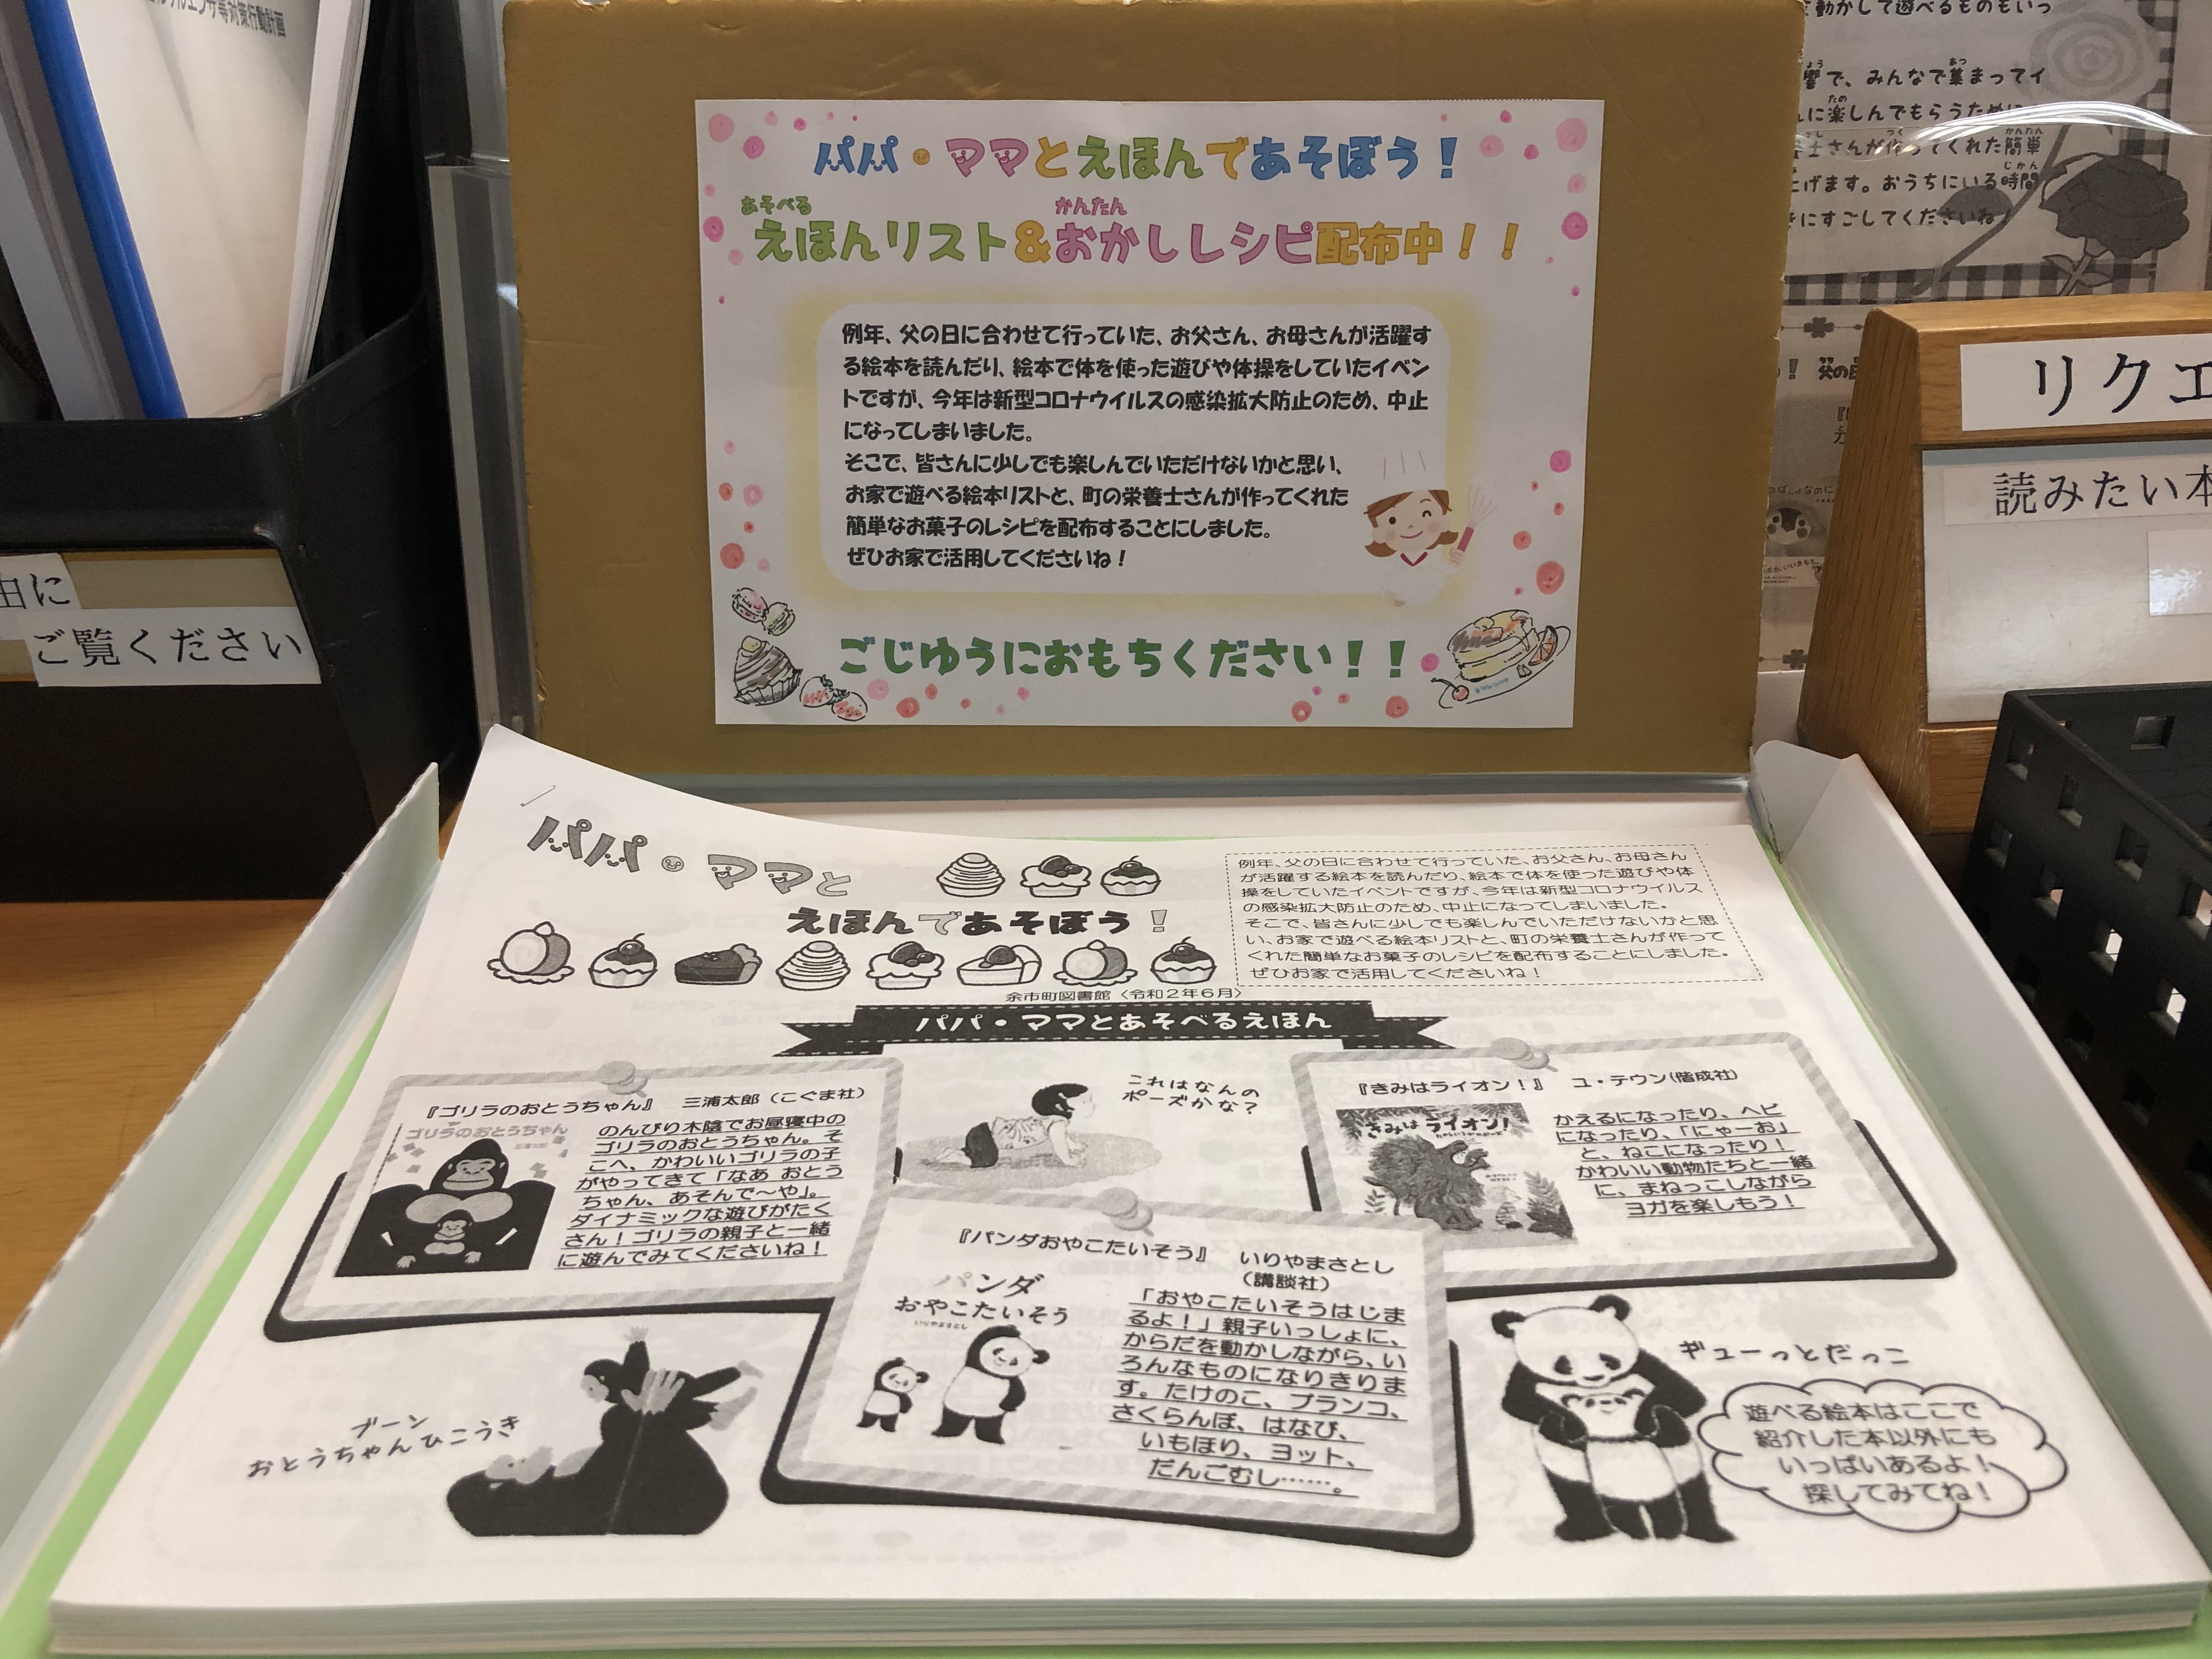 対策行動計画
パパ・ママとえほんであそぼう！
あそべる かんたん
えほんリスト&おかしレシピ配布中！！
例年、父の日に合わせて行っていた、お父さん、お母さんが活躍す
る絵本を読んだり、絵本で体を使った遊びや体操をしていたイベン
トですが、今年は新型コロナウイルスの感染拡大防止のため、中止
になってしまいました。
そこで、皆さんに少しでも楽しんでいただけないかと思い、
お家で遊べる絵本リストと、町の栄養士さんが作ってくれた
簡単なお菓子のレシピを配布することにしました。
ぜひお家で活用してくださいね！
ごじゆうにおもちください！！
動かして遊べるものもいっ
で、みんなで集まってイ
に楽しんでもらうために
士さんが作ってくれた簡単
げます。おうちにいる時間
にすごしてくださいね
リクエ
読みたい本
由に
ご覧ください
パパ・ママと
えほんであそぼう！
例年、父の日に合わせて行っていた、お父さん、お母さん
が活躍する絵本を読んだり、絵本で体を使った遊びや体
操をしていたイベントですが、今年は新型コロナウイルス
の感染拡大防止のため、中止になってしまいました。
そこで、皆さんに少しでも楽しんでいただけないかと思
い、お家で遊べる絵本リストと、町の栄養士さんが作って
くれた簡単なお菓子のレシピを配布することにしました。
ぜひお家で活用してくださいね！
余市町図書館〈令和２年６月〉
パパ・ママとあそべるえほん
『ゴリラのおとうちゃん』 三浦太郎（こぐま社）
ゴリラのおとうちゃん
のんびり木陰でお昼寝中の
ゴリラのおとうちゃん。そ
こへ、かわいいゴリラの子
がやってきて「なあ おとう
ちゃん、あそんで～や」。
ダイナミックな遊びがたく
さん！ゴリラの親子と一緒
に遊んでみてくださいね！
これはなんの
ポーズかな？
『きみはライオン！』 ユ・テウン（偕成社）
きみはライオン！
かえるになったり、ヘビ
になったり、「にゃーお」
と、ねこになったり！
かわいい動物たちと一緒
に、まねっこしながら
ヨガを楽しもう！
『パンダおやこたいそう』 いりやまさとし
（講談社）
パンダ
おやこたいそう
いりやまさとし
「おやこたいそうはじま
るよ！」親子いっしょに、
からだを動かしながら、い
ろんなものになりきりま
す。たけのこ、ブランコ、
さくらんぼ、はなび、
いもほり、ヨット、
だんごむし……。
ブーン
おとうちゃんひこうき
ギューっとだっこ
遊べる絵本はここで
紹介した本以外にも
いっぱいあるよ！
探してみてね！